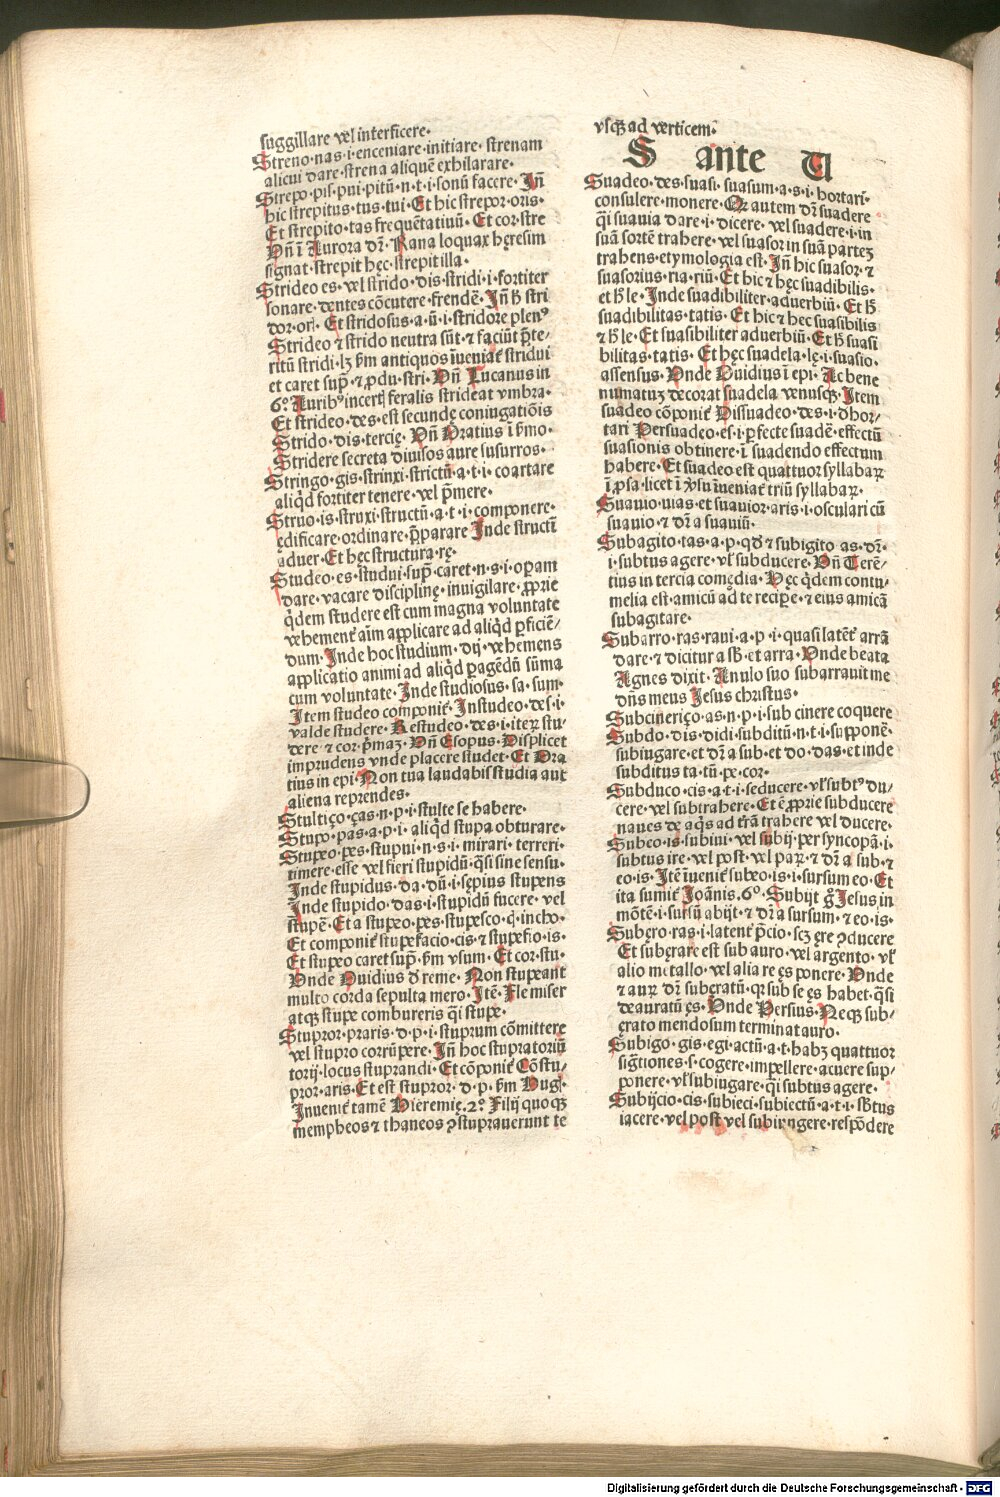 suggillare vel interficere·
Streno·nas·i·enceniare·initiare·strenam
alicui dare·strena aliquē exhilarare·
Strepo·pis·pui·pitū·n·t·i·sonū facere·Iñ
hic strepitus·tus·tui·Et hic strepor·oris·
Et strepito·tas frequētatiuū·Et cor·stre
Vñ ī Aurora dr̄·Rana loquax hęresim
signat·strepit hęc·strepit illa·
Strideo es·vel strido·dis·stridi·i·fortiter
sonare·dentes cōcutere·frendē·Iñ h̄ stri
dor·orꝭ·Et stridosus·a·ū·i·stridore plenꝰ
Strideo ⁊ strido neutra sūt·⁊ faciūt p̄te-
ritū stridi·lꝫ ẜm antiquos īueniat̄ stridui
et caret sup̄·⁊ ꝓdu·stri·Vñ Lucanus in
6°·Auribꝰ incerꝭ feralis strideat vmbra·
Et strideo·des·est secundę coniugatiōis
Strido·dis·tercię·Vñ Oratius ī ẜmo·
Stridere secreta diuisos aure susurros·
Stringo·gis·strinxi·strictū·a·t·i·coartare
aliqd̄ fortiter tenere·vel p̄mere·
Struo·is·struxi·structū·a·t·i·componere·
ędificare·ordinare·p̄parare Inde structī
aduer·Et hęc structura·rę·
Studeo·es·studui·sup̄·caret·n·s·i·operam
dare·vacare disciplinę·inuigilare·ꝓprie
q̄dem studere est cum magna voluntate
vehement̄ aīm applicare ad aliqd̄ ꝑficiē-
dum·Inde hoc studium·dij·vehemens
applicatio animi ad aliqd̄ ꝑagēdū sūma
cum voluntate·Inde studiosus·sa·sum·
Item studeo componit̄·Instudeo·des·i·
valde studere·Restudeo·des·i·iteꝝ stu-
dere·⁊ cor·p̄maꝫ·Vñ Esopus·Displicet
imprudens vnde placere studet·Et Ora
tius in epi·Non tua laudabis studia aut
aliena reprendes·
Stultiço·ças·n·p·i·stulte se habere·
Stupo·pas·a·p·i·aliqd̄ stupa obturare·
Stupeo·pes·stupui·n·s·i·mirari·terreri·
timere·esse vel fieri stupidū·q̄si sine sensu·
Inde stupidus·da·dū·i·sępius stupens
Inde stupido·das·i·stupidū facere·vel
stupē·Et a stupeo·pes·stupesco·q̄·incho·
Et componit̄ stupefacio·cis·⁊ stupefio·is·
Et stupeo caret sup̄·ẜm vsum·Et cor·stu·
Vnde Ouidius d̄ reme·Non stupeant
multo corda sepulta mero·Itē·Fle miser
atqꝫ stupe combureris q̄si stupe·
Stupror·praris·d·p·i·stuprum cōmittere
vel stupro corrūpere·Iñ hoc stupratoriū
torij·locus stuprandi·Et cōponit̄ Cōstu-
pror·aris·Et est stupror·d·p·ẜm Hug̓·
Inuenit̄ tamē Hieremię·2°·Filij quoqꝫ
mempheos ⁊ thaneos ꝯstuprauerunt te
vsqꝫ ad verticem·
S ante U
Suadeo·des·suasi·suasum·a·s·i·hortari·
consulere·monere·Qꝛ autem dr̄ suadere
q̄si suauia dare·i·dicere·vel suadere·i·in
suā sortē trahere·vel suasor in suā partez
trahens·etymologia est·Iñ hic suasor·⁊
suasorius·ria·riū·Et hic ⁊ hęc suadibilis·
et h̄ le·Inde suadibiliter·aduerbiū·Et h̄
suadibilitas·tatis·Et hic ⁊ hec suasibilis
⁊ h̄ le·Et suasibiliter aduerbiū·Et h̄ suasi
bilitas·tatis·Et hęc suadela·lę·i·suasio·
assensus·Vnde Ouidius ī epi·Ac bene
nūmatuꝫ decorat suadela venusqꝫ·Item
suadeo cōponit̄ Dissuadeo·des·i·dhor-
tari Persuadeo·es·i·ꝑfecte suadē·effectū
suasionis obtinere·ī suadendo effectum
habere·Et suadeo est quattuor syllabaꝝ
ī ꝓsa·licet ī v̓su īueniat̄ triū syllabaꝝ·
Suauio·uias·et suauior·aris·i·osculari cū
suauio·⁊ dr̄ a suauiū·
Subagito·tas·a·p·qd̄ ⁊ subigito·as·dr̄·
i·subtus agere·vl̓ subducere·Vñ Terē-
tius in tercia comędia·Hęc q̄dem contu-
melia est·amicū ad te recipe·⁊ eius amicā
subagitare·
Subarro·ras·raui·a·p·i·quasi latēt̄ arrā
dare·⁊ dicitur a sb̄·et arra·Vnde beata
Agnes dixit·Anulo suo subarrauit me
dn̄s meus Jesus christus·
Subcineriço·as·n·p·i·sub cinere coquere
Subdo·dis·didi·subditū·n·t·i·supponē·
subiugare·et dr̄ a sub·et do·das·et inde
subditus ta·tū·pe·cor·
Subduco·cis·a·t·i·seducere·vl̓ subtꝰ du-
cere·vel subtrahere·Et ē ꝓprie subducere
naues de aqs̄ ad trā̄ trahere vel ducere·
Subeo·is·subiui·vel subij·per syncopā·i·
subtus ire·vel post·vel paꝝ·⁊ dr̄ a sub·⁊
eo·is·Itē īuenit̄ subeo·is·i·sursum eo·Et
ita sumit̄ Joānis·6°·Subijt g̊ Jesus in
mōtē·i·sursū abijt·⁊ dr̄ a sursum·⁊ eo·is·
Subęro·ras·i·latent̄ p̄cio·scꝫ ęre ꝯducere
Et subęrare est sub auro·vel argento·vl̓
alio metallo·vel alia re ęs ponere·Vnde
⁊ auꝝ dr̄ subęratū·qꝛ sub se ęs habet·q̄si
deauratū ęs·Vnde Persius·Neqꝫ sub-
ęrato mendosum terminat auro·
Subigo·gis·egi·actū·a·t·habꝫ quattuor
sig̃tiones·s·cogere·impellere·acuere sup-
ponere·vl̓ subiugare·q̄si subtus agere·
Subijcio·cis·subieci·subiectū·a·t·i·sb̄tus
iacere·vel post vel subiungere·respōdere
Digitalisierung gefördert durch die Deutsche Forschungsgemeinschaft - DFG